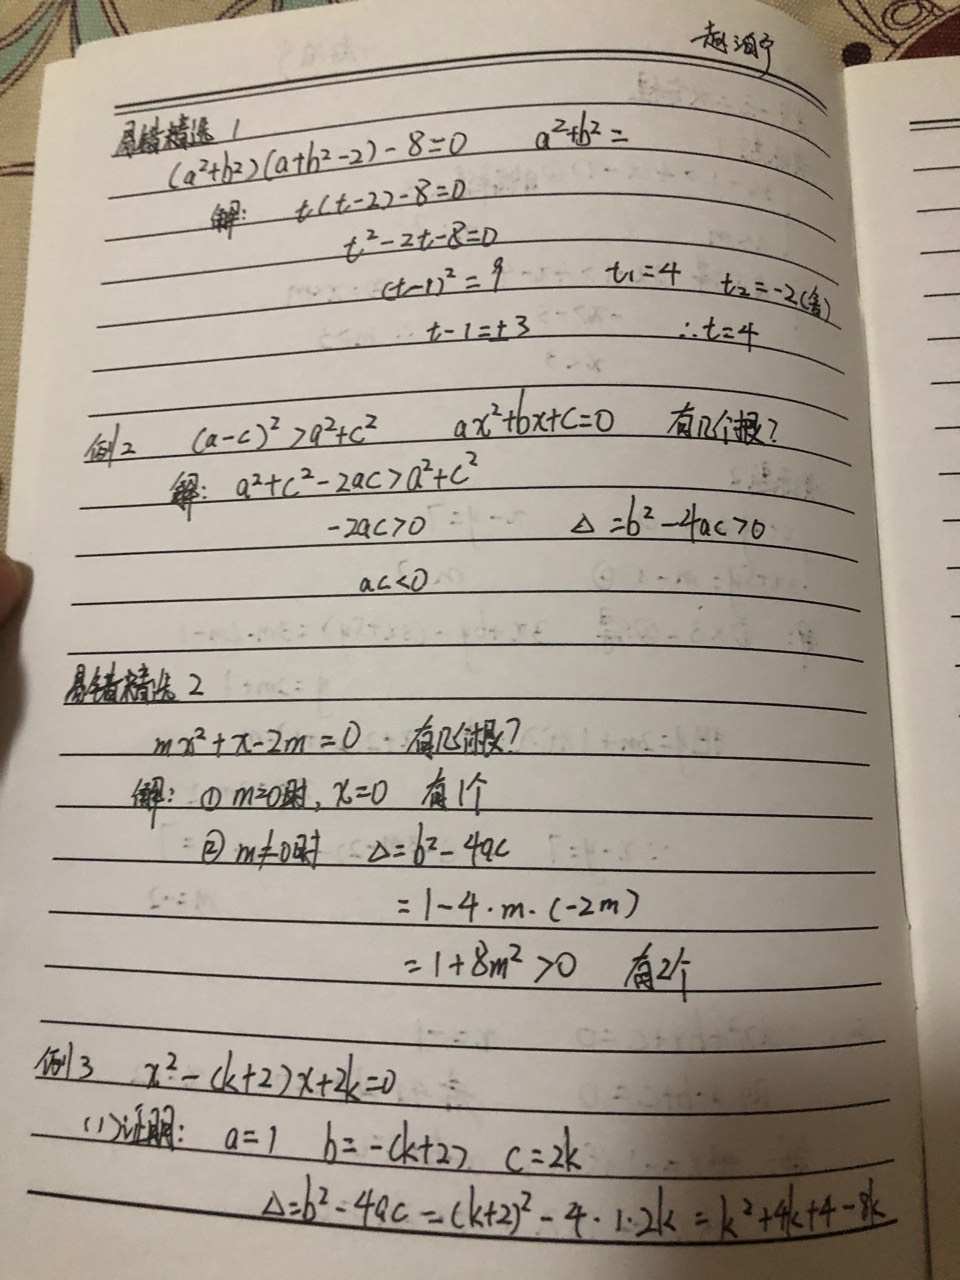 赵海宁
易错精选 1
(a²+b²)(a+b²-2)-8=0 a²+b²=
解: t(t-2)-8=0
t²-2t-8=0
(t-1)²=9 t₁=4 t₂=-2(舍)
t-1=±3 ∴t=4
例2 (a-c)²>a²+c² ax²+bx+c=0 有几个根?
解: a²+c²-2ac>a²+c²
-2ac>0 Δ=b²-4ac>0
ac<0
易错精选 2
mx²+x-2m=0 有几个根?
解: ① m=0时, x=0 有1个
② m≠0时 Δ=b²-4ac
=1-4·m·(-2m)
=1+8m²>0 有2个
例3 x²-(k+2)x+2k=0
(1)证明: a=1 b=-(k+2) c=2k
Δ=b²-4ac=(k+2)²-4·1·2k=k²+4k+4-8k